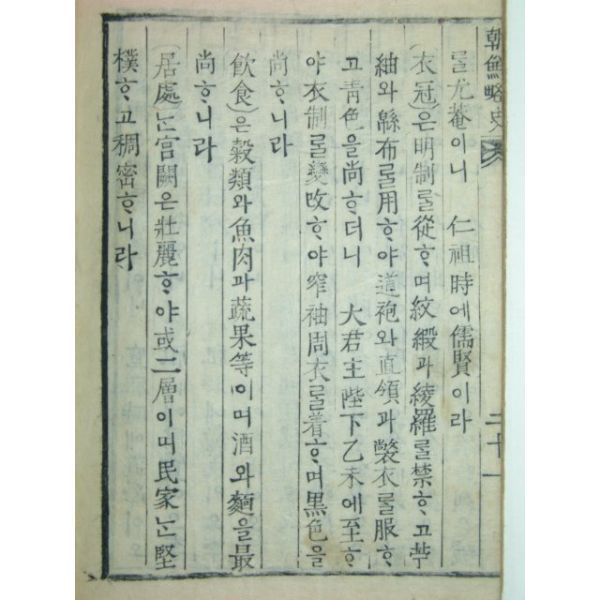 朝鮮略史
二十一
ᄅᆞᆯ尤菴이니 仁祖時에儒賢이라
(衣冠)은明制ᄅᆞᆯ從ᄒᆞ며紋緞과綾羅ᄅᆞᆯ禁ᄒᆞ고苧
紬와緜布ᄅᆞᆯ用ᄒᆞ야道袍와直領과氅衣ᄅᆞᆯ服ᄒᆞ
고青色을尚ᄒᆞ더니 大君主陛下乙未에至ᄒᆞ
야衣制ᄅᆞᆯ變改ᄒᆞ야窄袖周衣ᄅᆞᆯ着ᄒᆞ며黒色을
尚ᄒᆞ니라
(飮食)은穀類와魚肉과蔬果等이며酒와麵을最
尚ᄒᆞ니라
(居處)ᄂᆞᆫ宮闕은壯麗ᄒᆞ야或二層이며民家ᄂᆞᆫ堅
樸ᄒᆞ고稠密ᄒᆞ니라